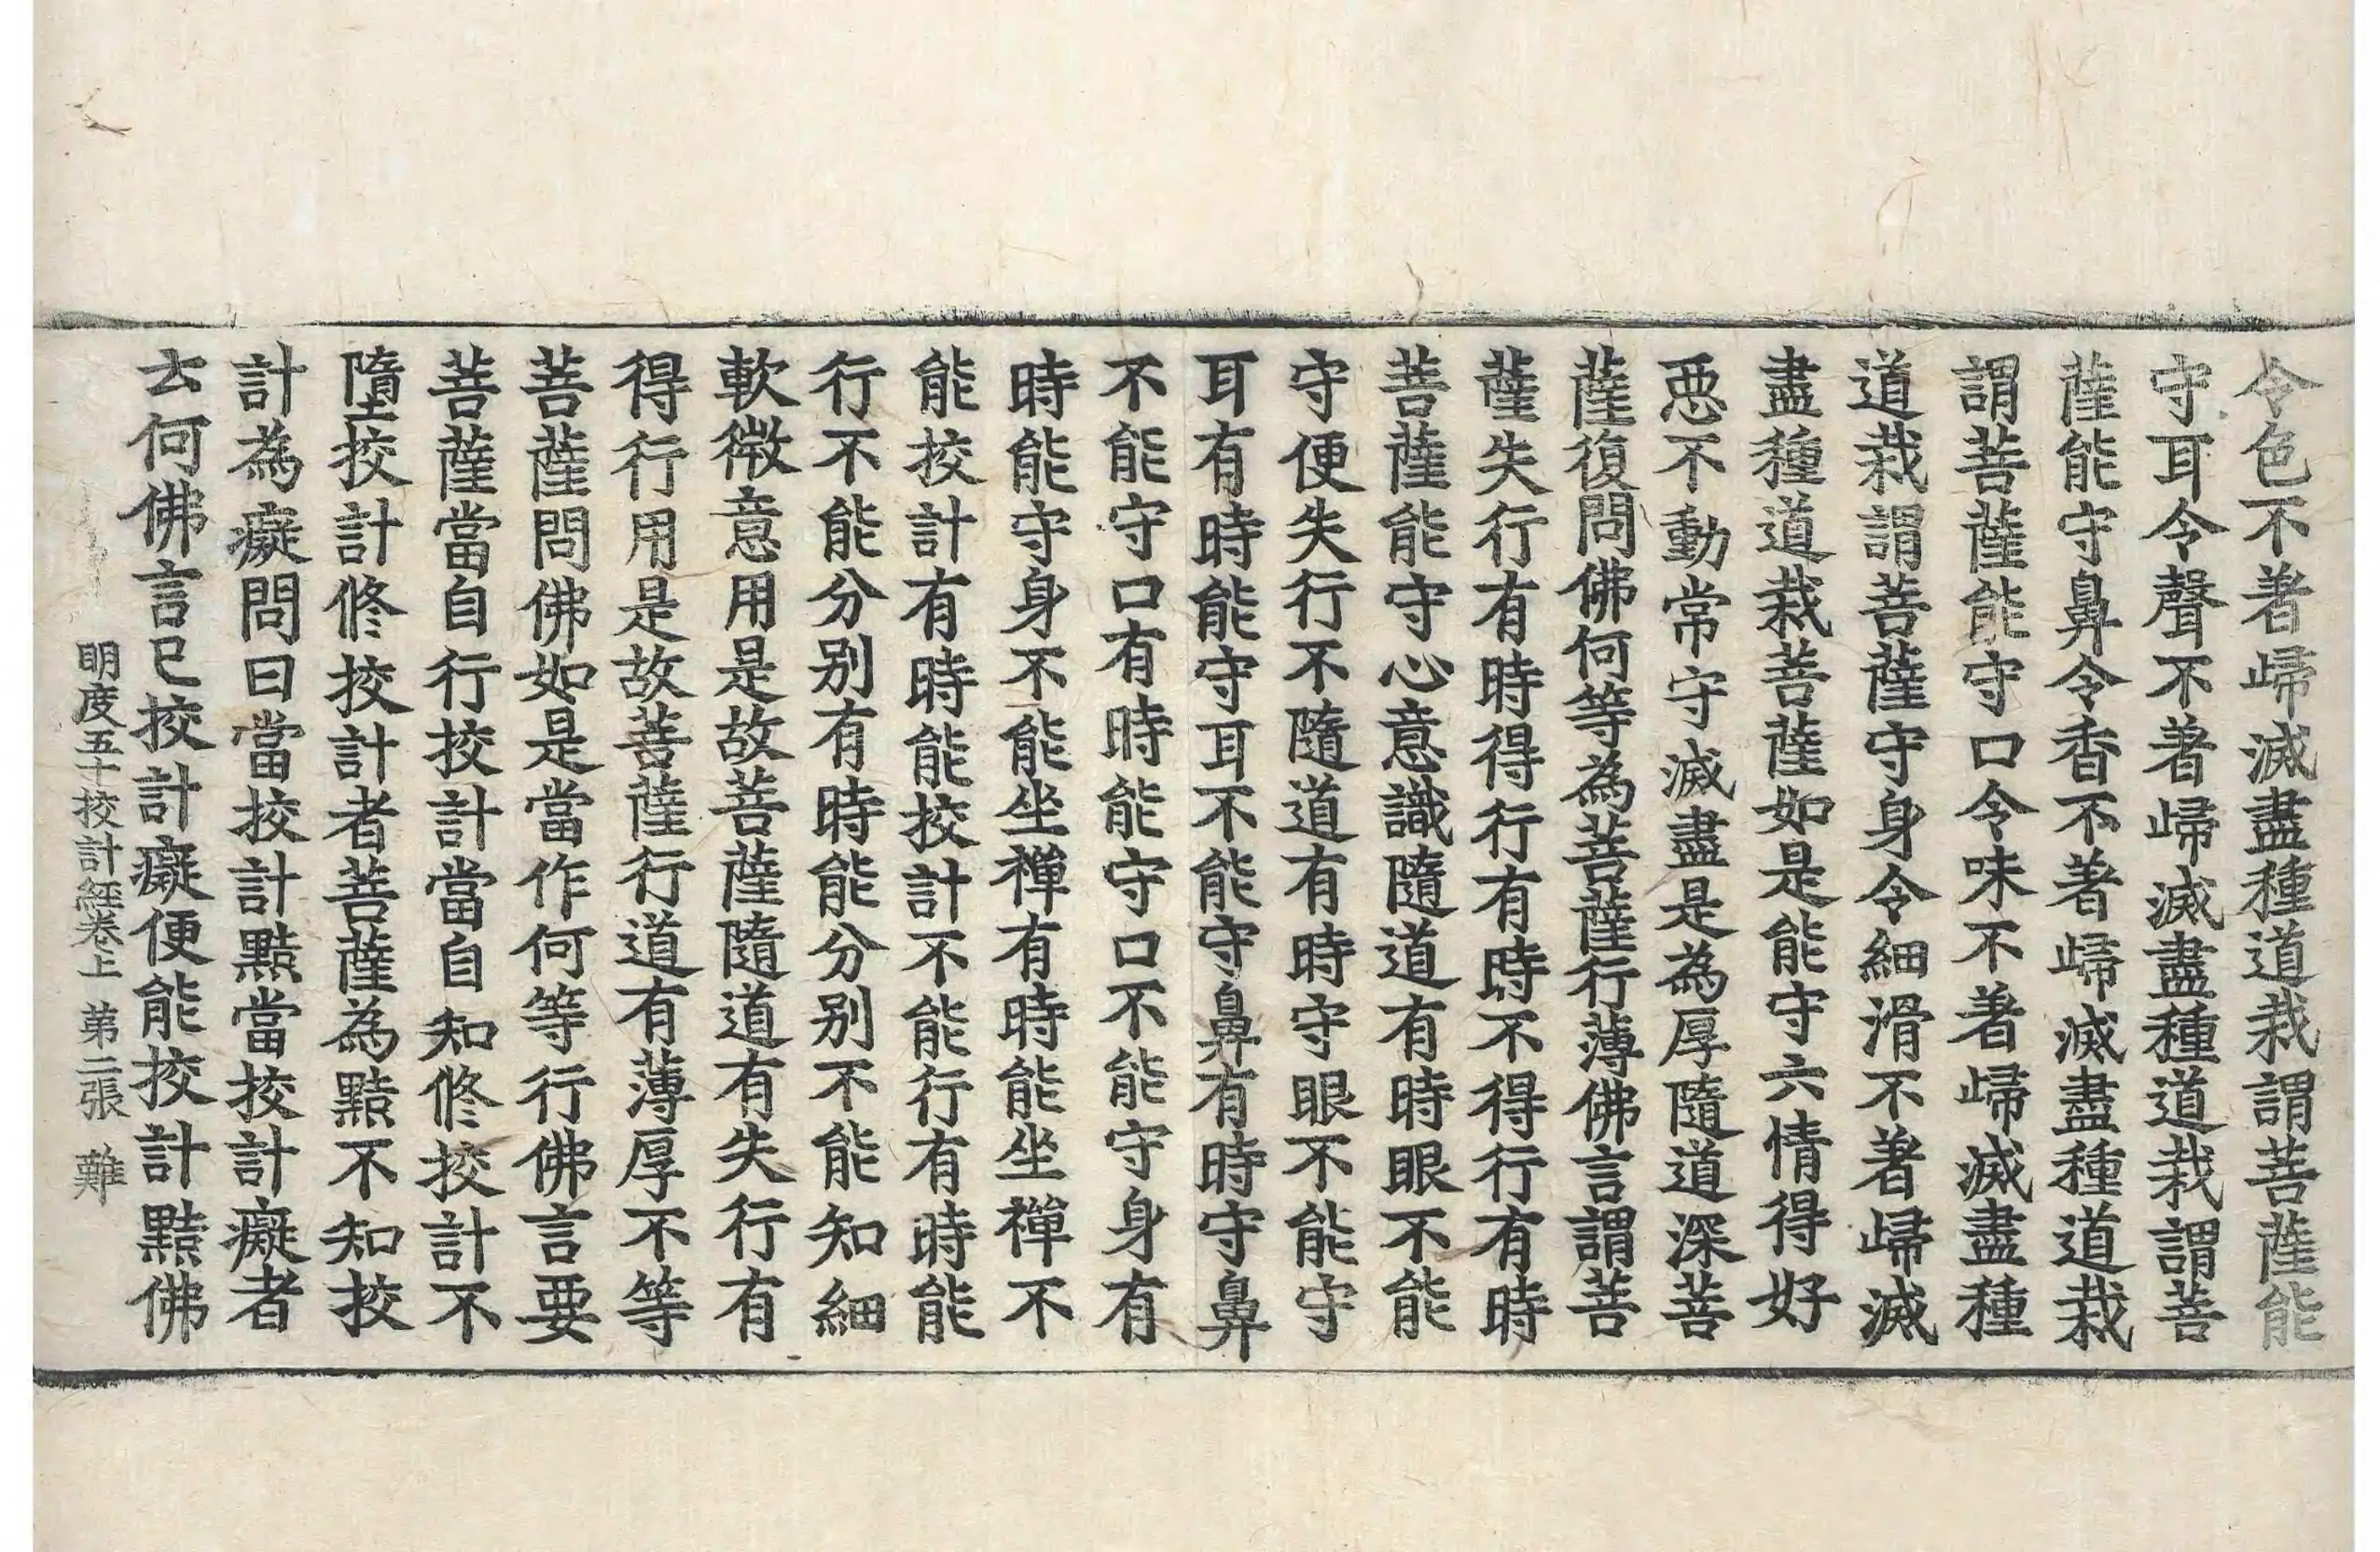 令色不著歸滅盡種道栽謂菩薩能
守耳令聲不著歸滅盡種道栽謂菩
薩能守鼻令香不著歸滅盡種道栽
謂菩薩能守口令味不著歸滅盡種
道栽謂菩薩守身令細滑不著歸滅
盡種道栽菩薩如是能守六情得好
惡不動常守滅盡是為厚隨道深菩
薩復問佛何等為菩薩行薄佛言謂菩
薩失行有時得行有時不得行有時
菩薩能守心意識隨道有時眼不能
守便失行不隨道有時守眼不能守
耳有時能守耳不能守鼻有時守鼻
不能守口有時能守口不能守身有
時能守身不能坐禪有時能坐禪不
能挍計有時能挍計不能行有時能
行不能分別有時能分別不能知細
軟微意用是故菩薩隨道有失行有
得行用是故菩薩行道有薄厚不等
菩薩問佛如是當作何等行佛言要
菩薩當自行挍計當自知俢挍計不
墮挍計俢挍計者菩薩為黠不知挍
計為癡問曰當挍計黠當挍計癡者
云何佛言已挍計癡便能挍計黠佛
明度五十挍計經卷上 第二張 難